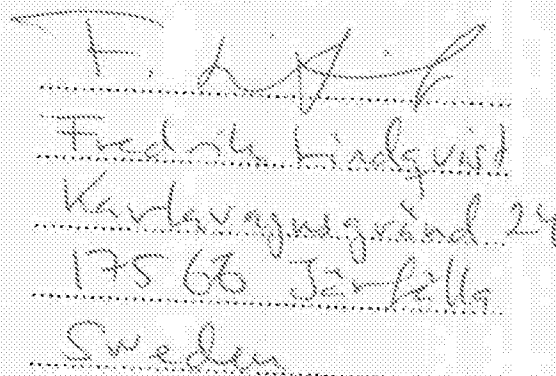 Fredrik Lindqvist
Karlavagnsgränd 24
175 68 Järfälla
Sweden